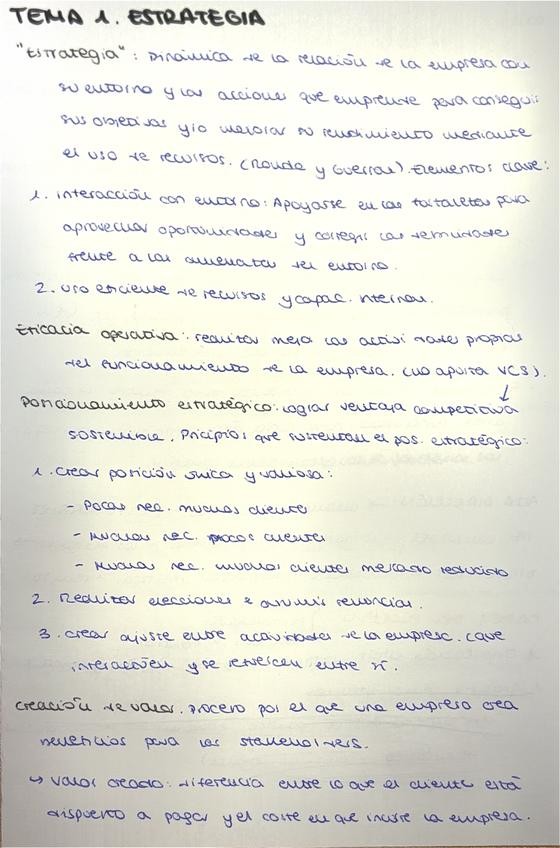 TEMA 1. ESTRATEGIA
"Estrategia": Dinámica de la relación de la empresa con
su entorno y las acciones que emprende para conseguir
sus objetivos y/o mejorar su rendimiento mediante
el uso de recursos. (Ronda y Guerras). Elementos clave:
1. interacción con entorno: Apoyarse en las fortalezas para
aprovechar oportunidades y corregir las debilidades
frente a las amenazas del entorno.
2. uso eficiente de recursos y capac. internas.
Eficacia operativa: realizar mejor las actividades propias
del funcionamiento de la empresa. (no aporta VCS).
Posicionamiento estratégico: lograr ventaja competitiva
sostenible. Pricipios que sustentan el pos. estratégico:
1. crear posición única y valiosa:
- Pocas nec. muchos cliente
- Muchas nec. pocos cliente
- Muchas nec. muchos clientes mercado reducido
2. Realizar elecciones e asumir renuncias.
3. crear ajuste entre actividades de la empresa. (que
interactúen y se refuercen entre sí.
Creación de valor. proceso por el que una empresa crea
beneficios para los stakeholders.
↳ valor creado: diferencia entre lo que el cliente está
dispuesto a pagar y el coste en que incurre la empresa.